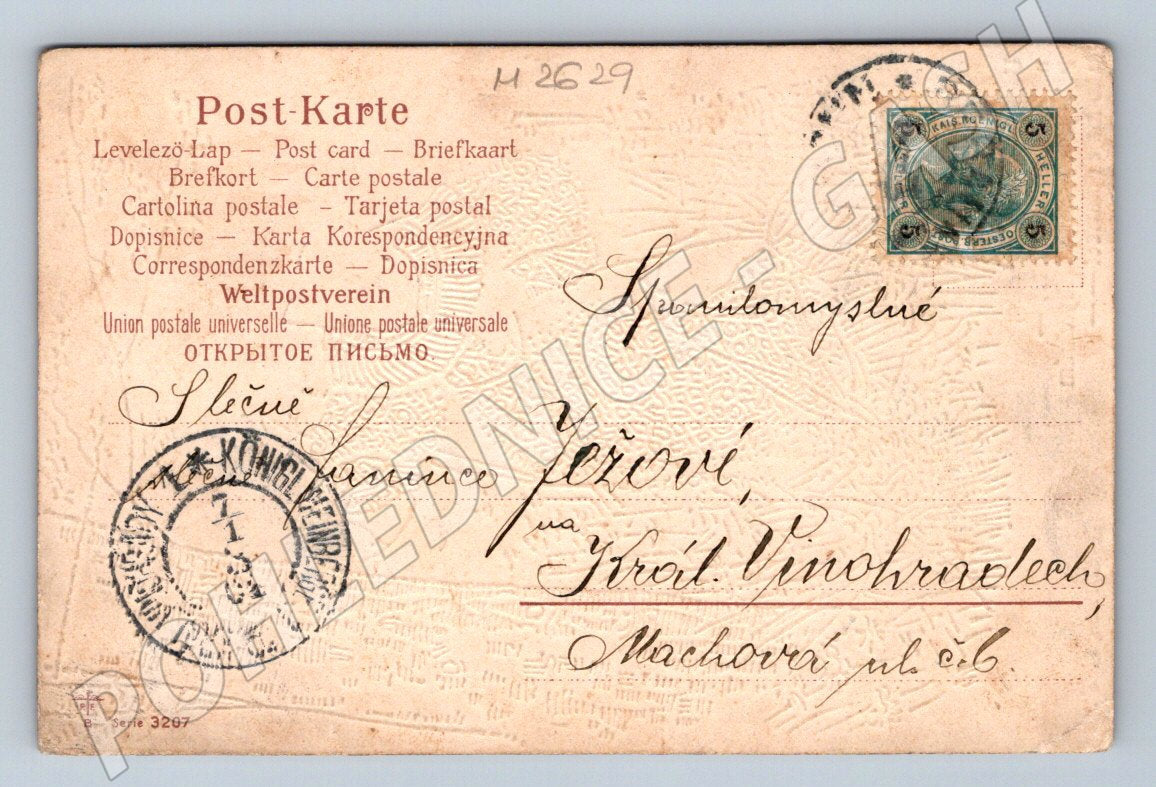 M 2629
Post-Karte
Levelezö-Lap — Post card — Briefkaart
Brefkort — Carte postale
Cartolina postale - Tarjeta postal
Dopisnice — Karta Korespondencyjna
Correspondenzkarte — Dopisnica
Weltpostverein
Union postale universelle — Unione postale universale
ОТКРЫТОЕ ПИСЬМО.
5 5
KAIS. KOENIGL.
HELLER
OESTERR. POST
5 5
Spanilomyslné
Slečně
slečně Jezové,
na
Král. Vinohradech,
Machová ul. č. 6.
KÖNIGL. WEINBERGE
7/1
P F
B Serie 3207
POHLEDNICE - GASH